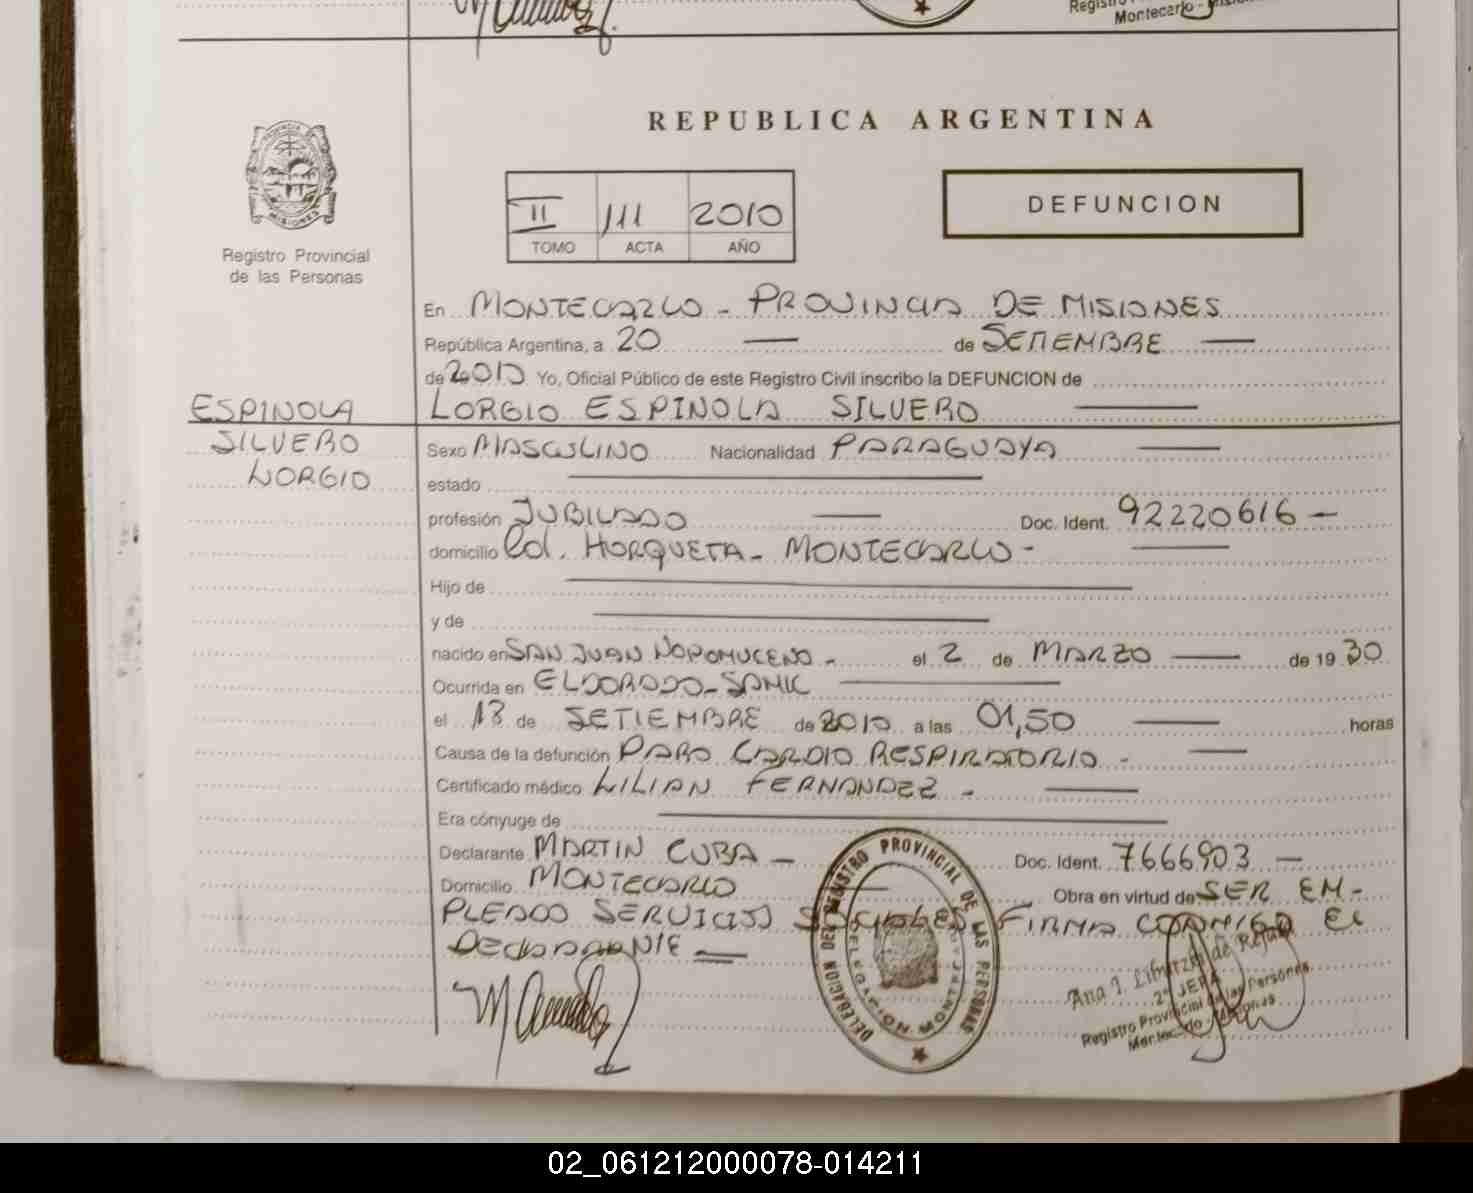 Montecarlo -
REPUBLICA ARGENTINA
II 111 2010
TOMO ACTA AÑO
DEFUNCION
Registro Provincial
de las Personas
En MONTECARLO - PROVINCIA DE MISIONES
República Argentina, a 20 — de SETIEMBRE —
de 2010 Yo, Oficial Público de este Registro Civil inscribo la DEFUNCION de
ESPINOLA LORGIO ESPINOLA SILVERO —
SILVERO Sexo MASCULINO Nacionalidad PARAGUAYA —
LORGIO estado —
profesión JUBILADO — Doc. Ident. 92220616 —
domicilio Col. HORQUETA - MONTECARLO - —
Hijo de —
y de —
nacido en SAN JUAN NOPOMUCENO - el 2 de MARZO — de 19 30
Ocurrida en ELDORADO - SAMIC —
el 13 de SETIEMBRE de 2010 a las 01,50 — horas
Causa de la defunción PARO CARDIO RESPIRATORIO - —
Certificado médico LILIAN FERNANDEZ - —
Era cónyuge de —
Declarante MARTIN CUBA — Doc. Ident. 7666903 —
Domicilio MONTECARLO — Obra en virtud de SER EM-
PLEADO SERVICIOS SOCIALES FIRMA CONMIGO EL
DECLARANTE —
DELEGACION DEL REGISTRO PROVINCIAL DE LAS PERSONAS
2º JEFA
Registro Provincial de las Personas
02_061212000078-014211